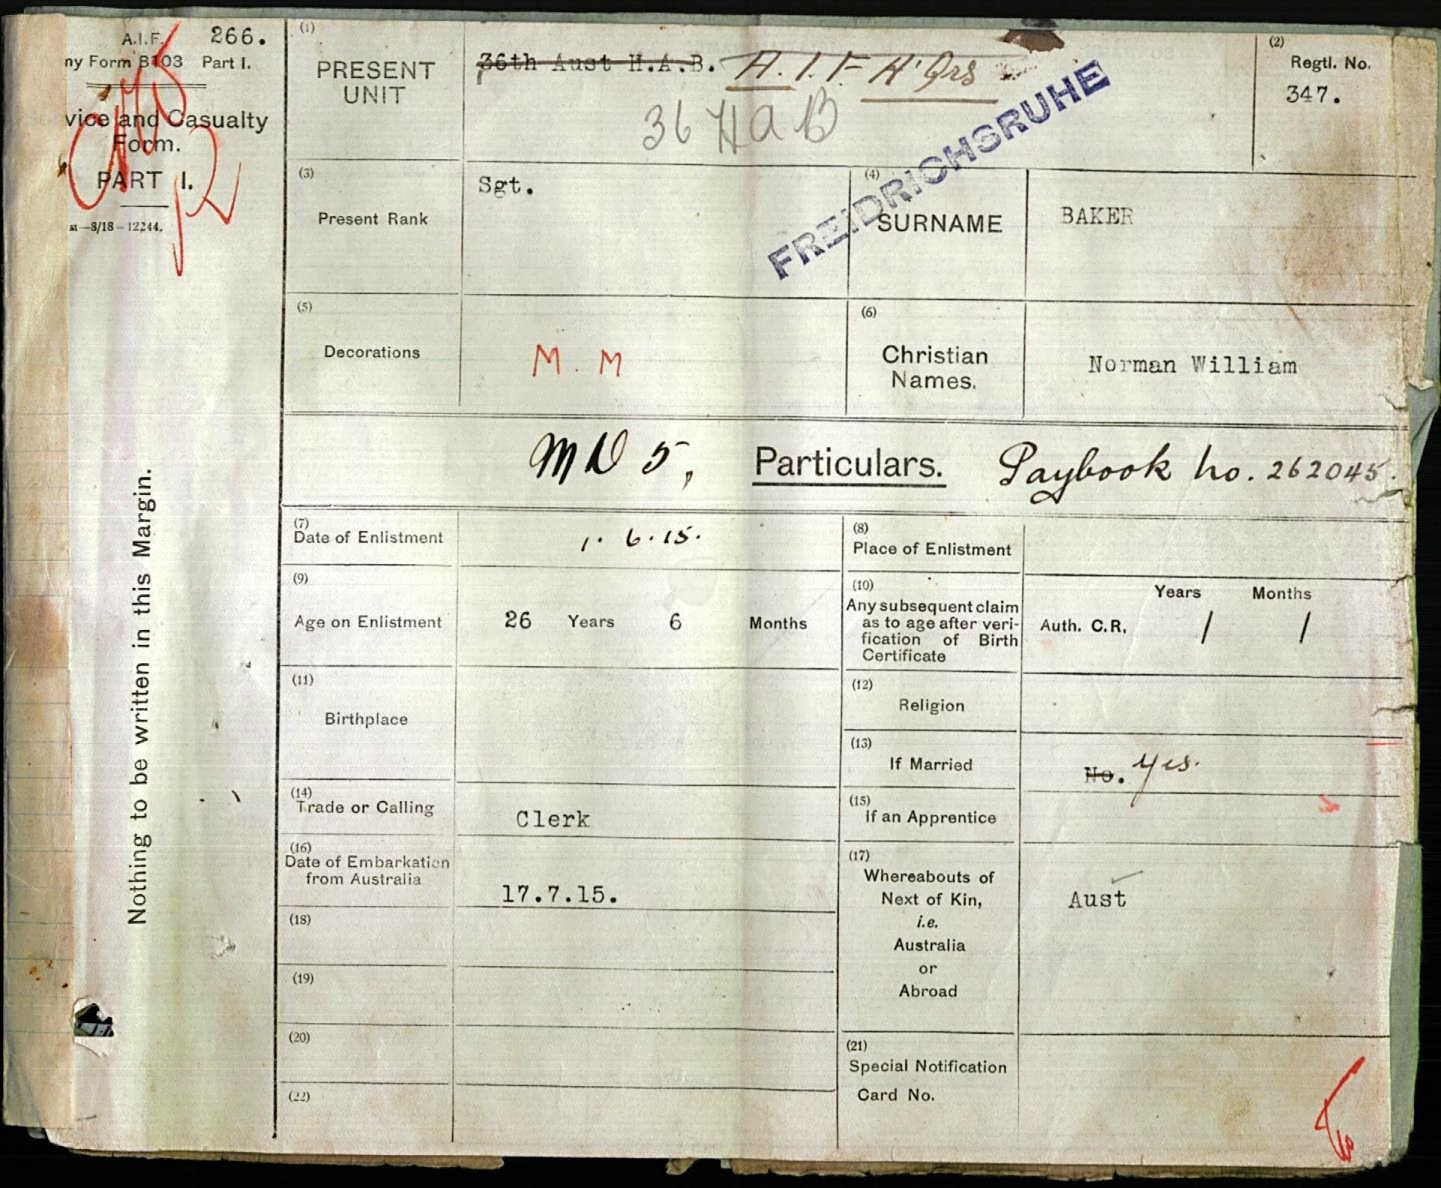 A.I.F. 266.
ny Form B103 Part I.
vice and Casualty
Form.
PART I.
8/18-12244.
Nothing to be written in this Margin.
(1)
PRESENT
UNIT
36th Aust H.A.B. A.I.F H'Qrs
36 HAB
FREIDRICHSRUHE
(2)
Regtl. No.
347.
(3)
Present Rank
Sgt.
(4)
SURNAME
BAKER
(5)
Decorations
M.M
(6)
Christian
Names.
Norman William
Particulars.
Paybook No. 262045.
(7)
Date of Enlistment
1.6.15.
(8)
Place of Enlistment
(9)
Age on Enlistment
26 Years 6 Months
(10)
Any subsequent claim
as to age after veri-
fication of Birth
Certificate
Years Months
Auth. C.R, / /
(11)
Birthplace
(12)
Religion
(13)
If Married
No. Yes.
(14)
Trade or Calling
Clerk
(15)
If an Apprentice
(16)
Date of Embarkation
from Australia
17.7.15.
(17)
Whereabouts of
Next of Kin,
i.e.
Australia
or
Abroad
Aust
(18)
(19)
(20)
(21)
Special Notification
Card No.
(22)